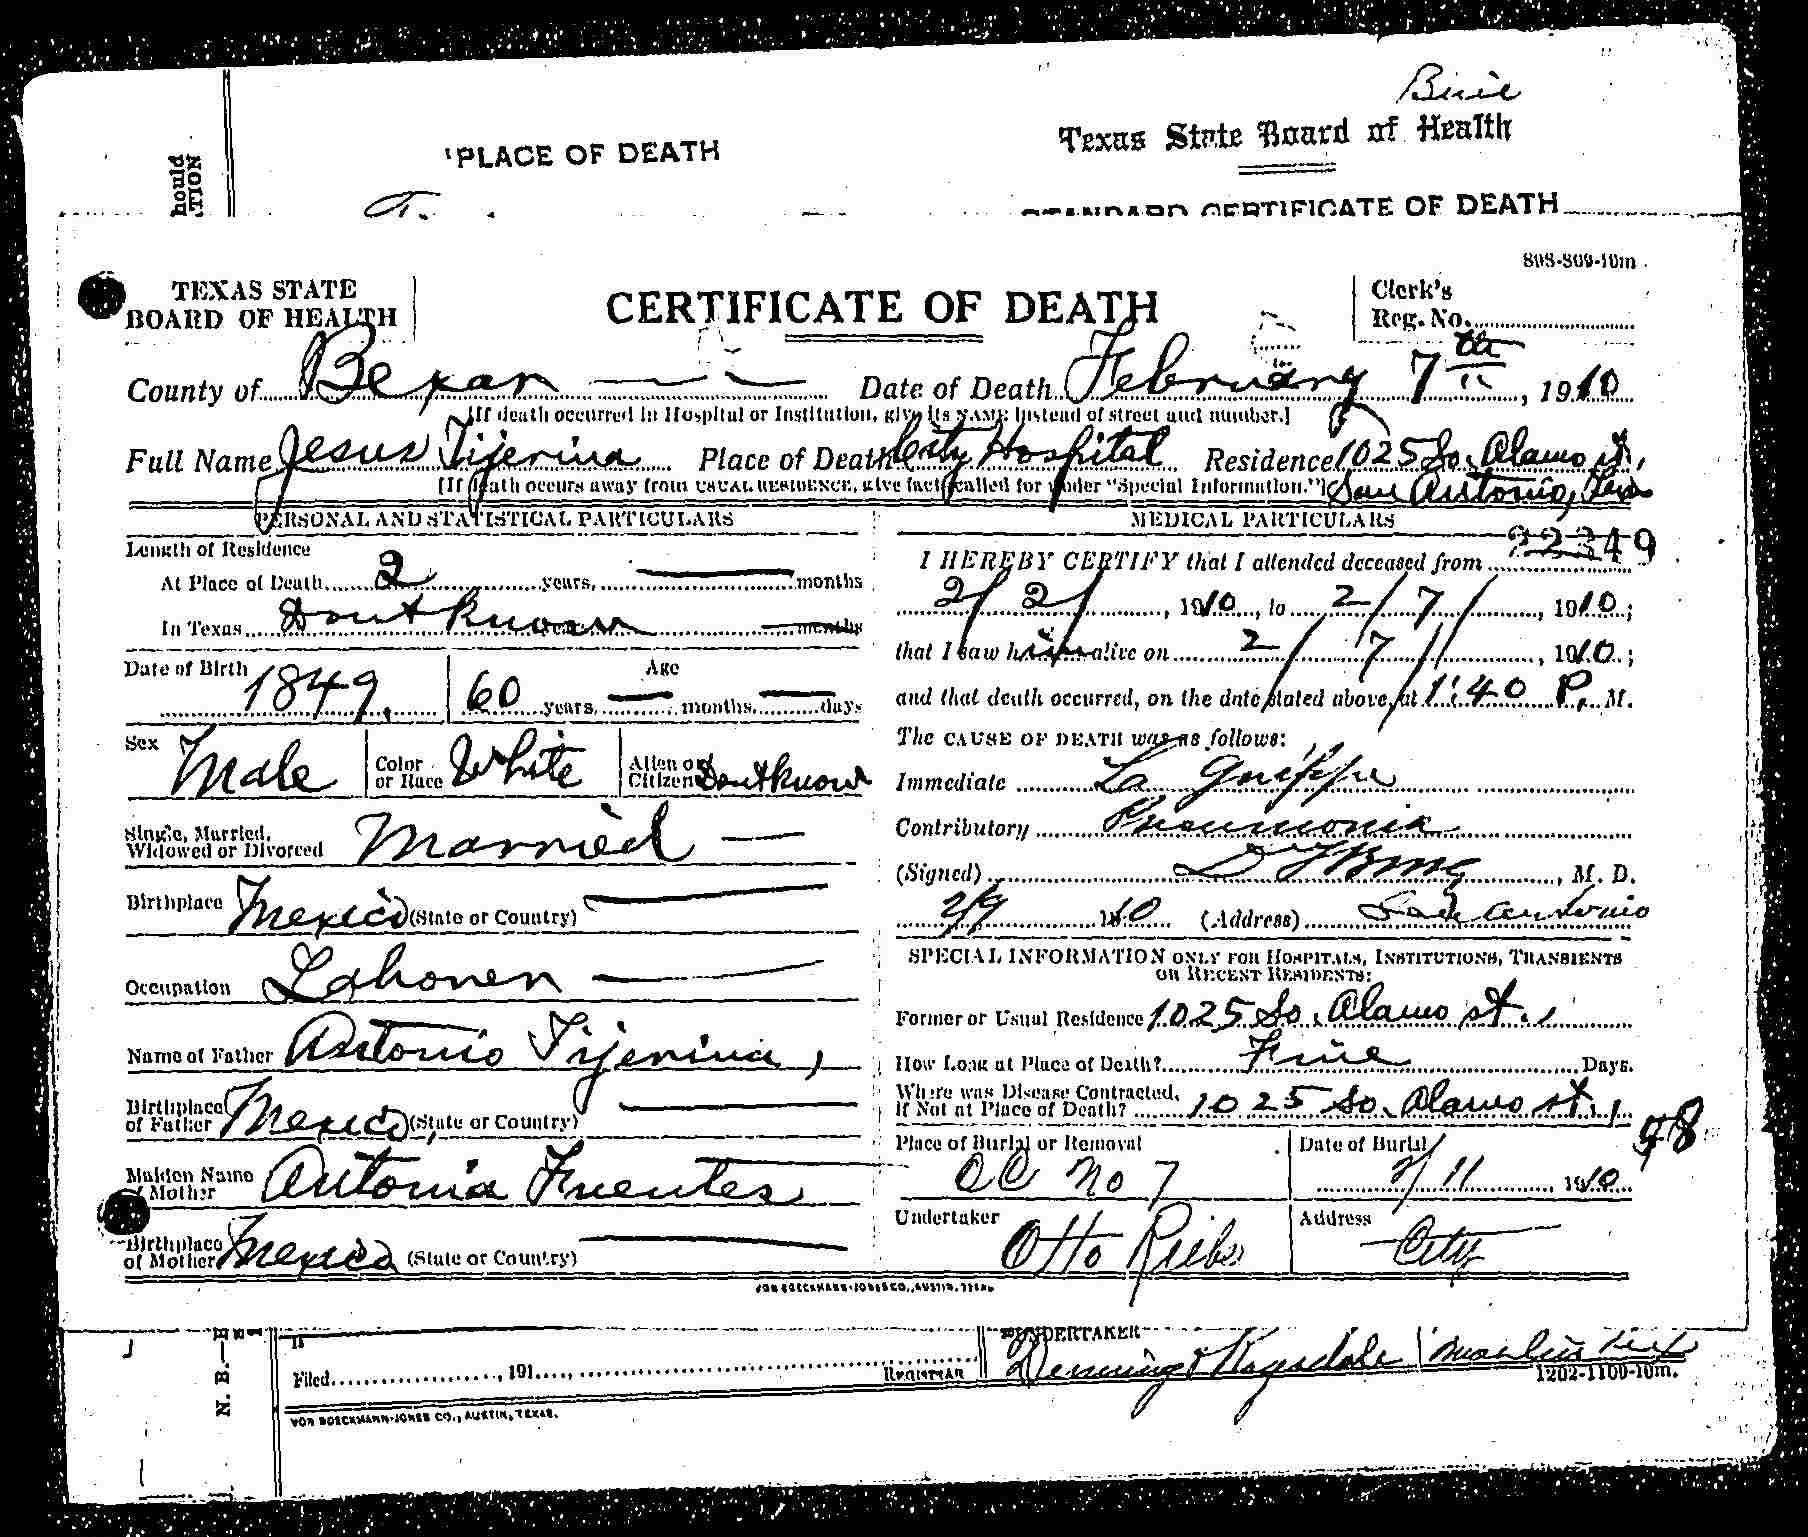 Texas State Board of Health
PLACE OF DEATH
STANDARD CERTIFICATE OF DEATH
808-809-10m
TEXAS STATE
BOARD OF HEALTH
CERTIFICATE OF DEATH
Clerk's
Reg. No.
County of Bexar Date of Death February 7th, 1910
[If death occurred in Hospital or Institution, give its NAME instead of street and number.]
Full Name Jesus Tijerina Place of Death City Hospital Residence 1025 So. Alamo st.,
[If death occurs away from USUAL RESIDENCE, give facts called for under "Special Information."] San Antonio, Texas
PERSONAL AND STATISTICAL PARTICULARS
Length of Residence
At Place of Death 2 years, months
In Texas Dont know years months
Date of Birth 1849. Age 60 years, months, days
Sex Male Color or Race White Alien or Citizen Dont know
Single, Married, Widowed or Divorced Married
Birthplace Mexico (State or Country)
Occupation Laborer
Name of Father Antonio Tijerina,
Birthplace of Father Mexico, (State or Country)
Maiden Name of Mother Antonia Fuentes
Birthplace of Mother Mexico (State or Country)
MEDICAL PARTICULARS
22349
I HEREBY CERTIFY that I attended deceased from
2/2/, 1910, to 2/7/, 1910;
that I saw him alive on 2/7/, 1910;
and that death occurred, on the date stated above, at 1:40 P. M.
The CAUSE OF DEATH was as follows:
Immediate La Grippe
Contributory Pneumonia
(Signed) , M. D.
2/9 1910 (Address) San Antonio
SPECIAL INFORMATION ONLY FOR HOSPITALS, INSTITUTIONS, TRANSIENTS
OR RECENT RESIDENTS:
Former or Usual Residence 1025 So. Alamo st.,
How Long at Place of Death? Five Days.
Where was Disease Contracted,
If Not at Place of Death? 1025 So. Alamo st.,
58
Place of Burial or Removal Date of Burial
CC No 7 2/11 1910
Undertaker Otto Riebe Address City
VON BOECKMANN-JONES CO., AUSTIN, TEXAS.
N. B.—
Filed , 191 , REGISTRAR
UNDERTAKER
Denning & Ragsdale
1202-1109-10m.
VON BOECKMANN-JONES CO., AUSTIN, TEXAS.